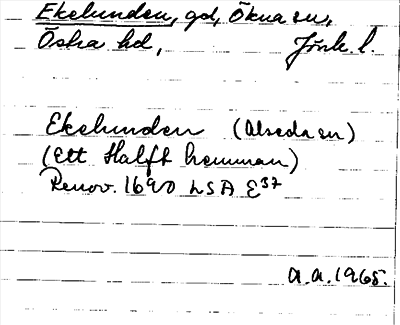 Ekelunden, gd, Ökna sn,
Östra hd, Jönk. l.
Ekelunden (Alseda sn)
(Ett Halft hemman)
Renov. 1690 LSA E37
A.A. 1965.